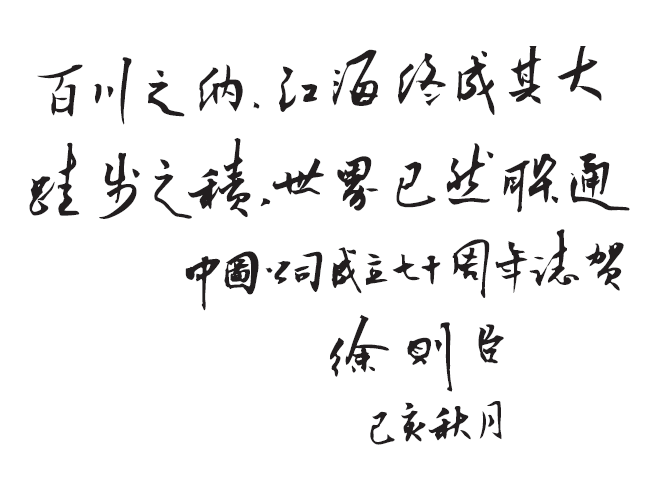 百川之纳、江海终成其大
跬步之積、世界已然联通
中圖公司成立七十周年誌贺
徐则臣
己亥秋月